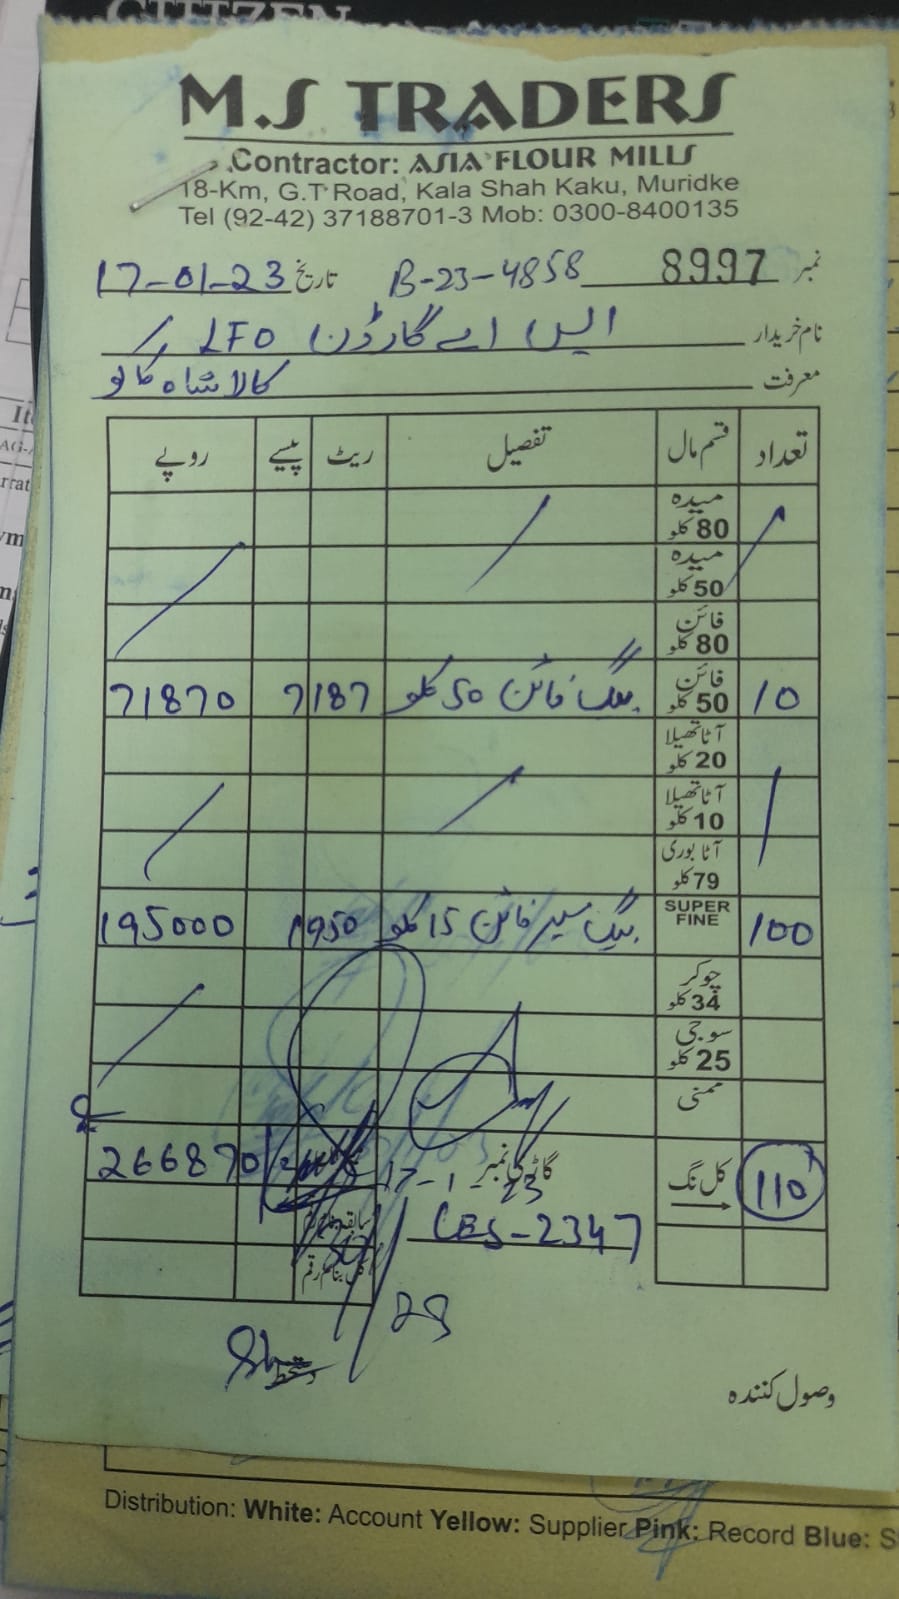 CITIZEN
M.S TRADERS
Contractor: ASIA FLOUR MILLS
18-Km, G.T Road, Kala Shah Kaku, Muridke
Tel (92-42) 37188701-3 Mob: 0300-8400135
نمبر 8997 B-23-4858 تاریخ 17-01-23
نام خریدار ایس اے گارڈن LFO
معرفت کالا شاہ کاکو
تعداد قسم مال تفصیل ریٹ پیسے روپے
میدہ 80 کلو
میدہ 50 کلو
فائن 80 کلو
10 فائن 50 کلو بیگ فائن 50 کلو 7187 71870
آٹا تھیلا 20 کلو
آٹا تھیلا 10 کلو
آٹا بوری 79 کلو
100 SUPER FINE بیگ سپر فائن 15 کلو 1950 195000
چوکر 34 کلو
سوجی 25 کلو
ممنی
110 کل نگ گاڑی نمبر 266870
17-1-23
LES-2347 سابقہ
کل بنام رقم
دستخط
وصول کنندہ
Distribution: White: Account Yellow: Supplier Pink: Record Blue: